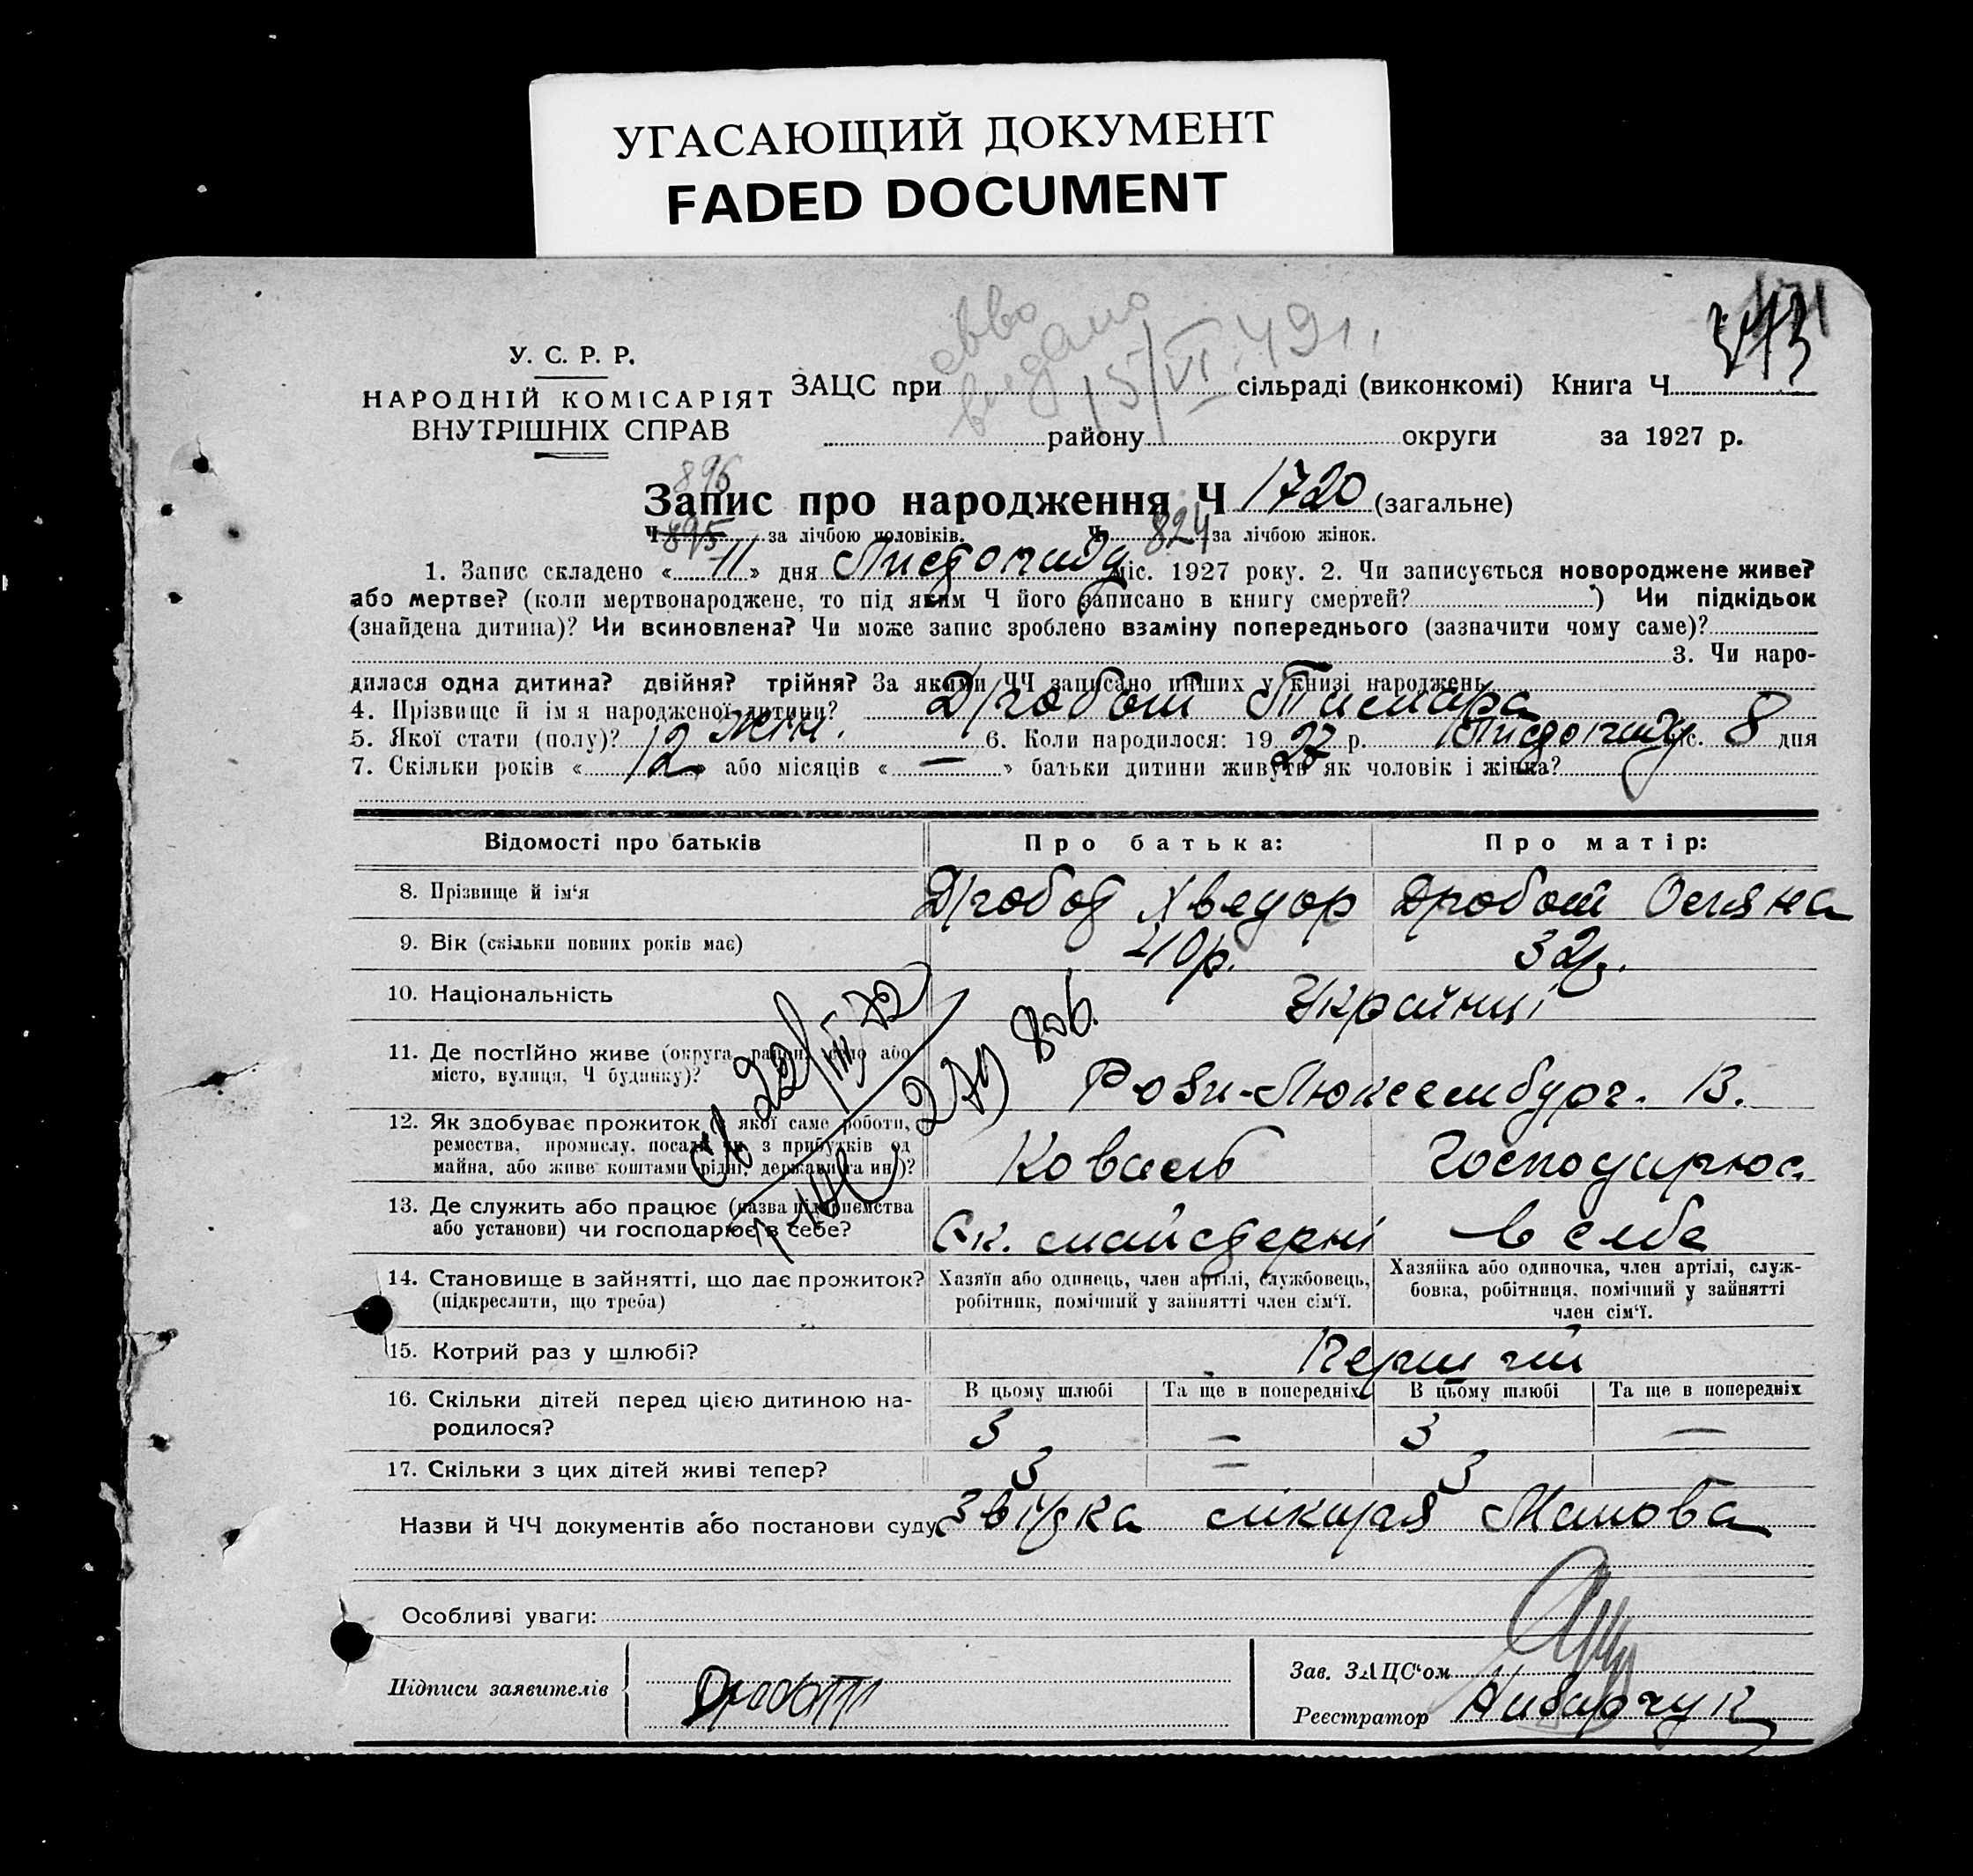 УГАСАЮЩИЙ ДОКУМЕНТ
FADED DOCUMENT
У. С. Р. Р.
НАРОДНІЙ КОМІСАРІЯТ
ВНУТРІШНІХ СПРАВ
видано
15/VI 49 г.
ЗАЦС при сільраді (виконкомі) Книга Ч
району округи за 1927 р.
896
Запис про народження Ч 1720 (загальне)
Ч 895 за лічбою чоловіків. Ч 824 за лічбою жінок.
1. Запис складено « 11 » дня Листопаду міс. 1927 року. 2. Чи записується новороджене живе?
або мертве? (коли мертвонароджене, то під яким Ч його записано в книгу смертей? ) Чи підкідьок
(знайдена дитина)? Чи всиновлена? Чи може запис зроблено взаміну попереднього (зазначити чому саме)?
3. Чи наро-
дилася одна дитина? двійня? трійня? За якими ЧЧ записано инших у книзі народжень
4. Прізвище й ім я народженої дитини? Дробот Тамара
5. Якої стати (полу)? жін. 6. Коли народилося: 19 27 р. Листопаду міс. 8 дня
7. Скільки років « 12 » або місяців « — » батьки дитини живуть як чоловік і жінка?
Відомості про батьків Про батька: Про матір:
8. Прізвище й ім'я Дробот Хведор Дробот Оксяна
9. Вік (скільки повних років має) 40 р. 32 р.
10. Національність Українці
11. Де постійно живе (округа, район, село або
місто, вулиця, Ч будинку)? Рози-Люксембург. 13.
12. Як здобуває прожиток (з якої саме роботи,
ремества, промислу, посади чи з прибутків од
майна, або живе коштами рідні, держави та ин.)? Коваль Господарює
13. Де служить або працює (назва підприємства
або установи) чи господарює в себе? Ок. майстерні в себе
14. Становище в зайнятті, що дає прожиток?
(підкреслити, що треба)
Хазяїн або одинець, член артілі, службовець,
робітник, помічний у зайнятті член сім'ї.
Хазяйка або одиночка, член артілі, служ-
бовка, робітниця, помічний у зайнятті
член сім'ї.
15. Котрий раз у шлюбі? Перший
16. Скільки дітей перед цією дитиною на-
родилося?
В цьому шлюбі Та ще в попередніх В цьому шлюбі Та ще в попередніх
3 — 3 —
17. Скільки з цих дітей живі тепер? 3 — 3
Назви й ЧЧ документів або постанови суду Звістка лікаря
Особливі уваги:
Підписи заявителів Дробот
Зав. ЗАЦС'ом
Реєстратор